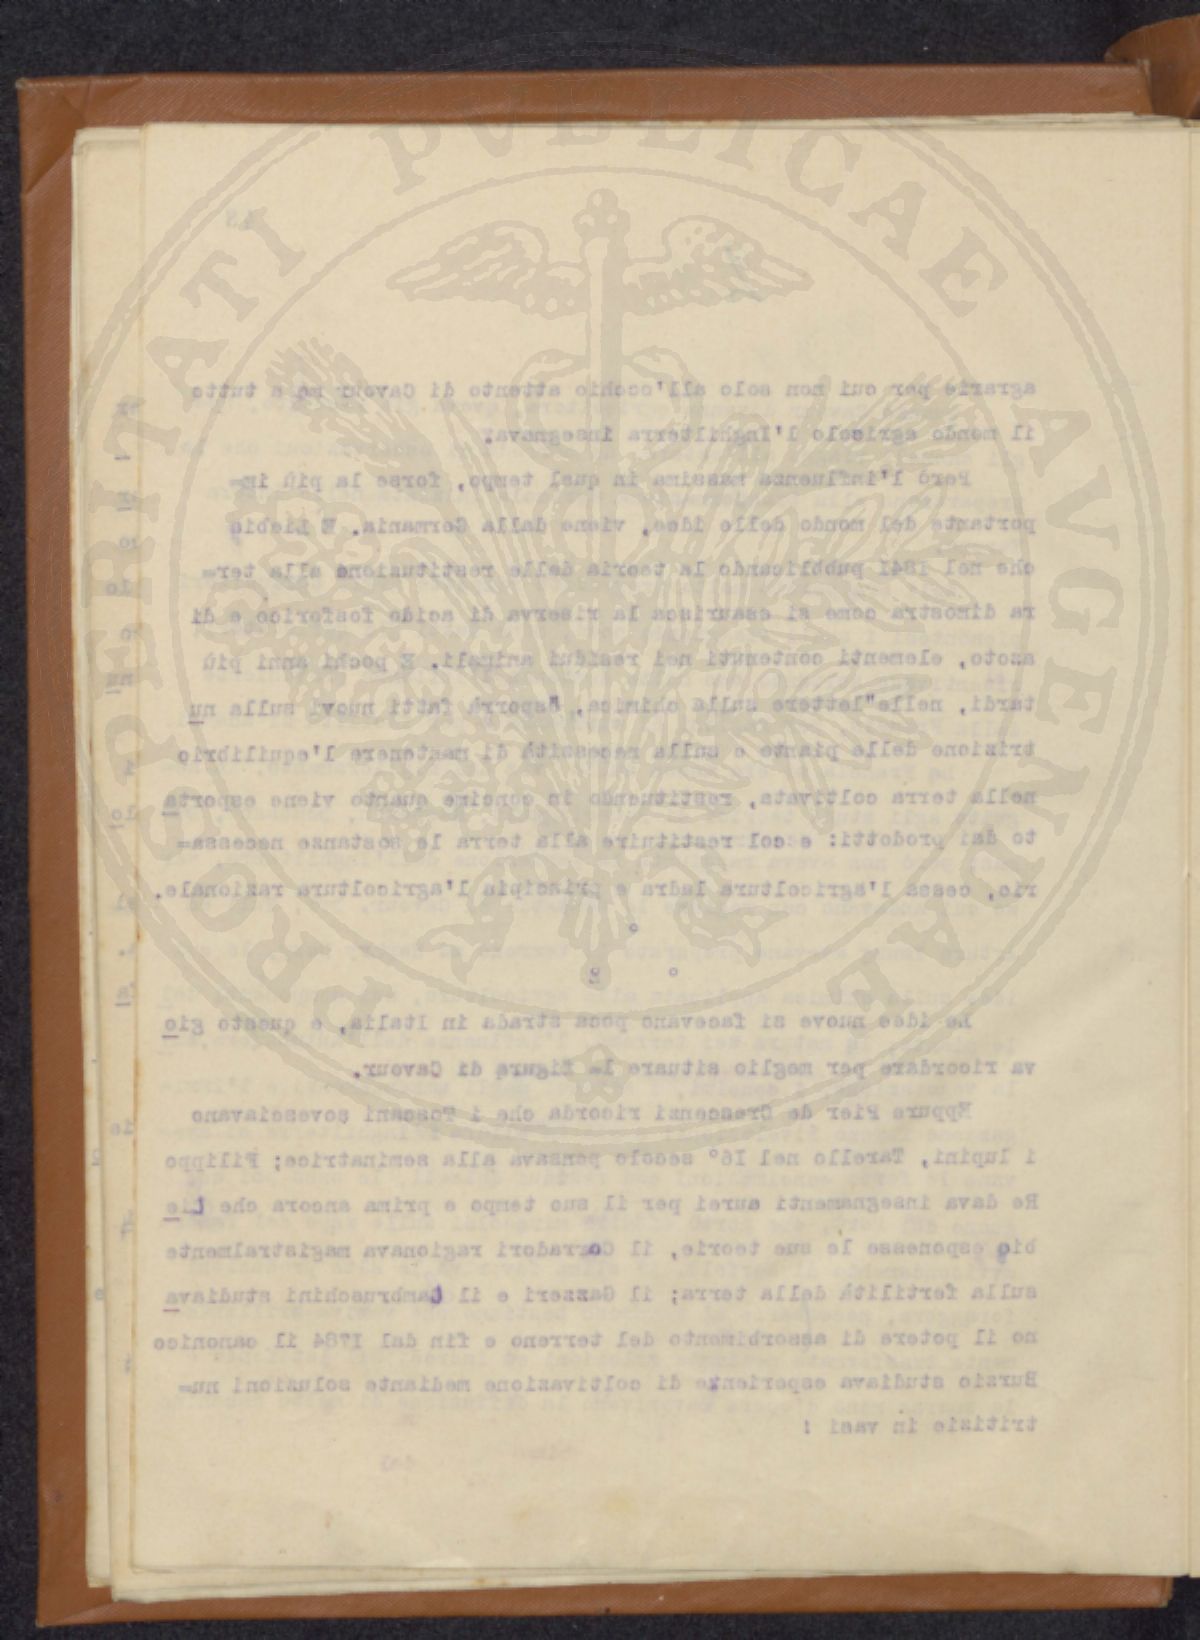 PROSPERITATI PVBLICAE AVGENDAE
agrarie per cui non solo all'occhio attento di Cavour ma a tutto
il mondo agricolo l'Inghilterra insegnava.
Però l'influenza massima in quel tempo, forse la più im=
portante del mondo delle idee, viene dalla Germania. E Liebig
che nel 1841 pubblicando la teoria delle restituzione alla ter=
ra dimostra come si esaurisca la riserva di acido fosforico e di
azoto, elementi contenuti nei residui animali. E pochi anni più
tardi, nelle "lettere sulla chimica, esporrà fatti nuovi sulla nu
trizione delle piante e sulla necessità di mantenere l'equilibrio
nella terra coltivata, restituendo in concime quanto viene esporta
to dai prodotti: e col restituire alla terra le sostanze necessa=
rie, cessa l'agricoltura ladra e principia l'agricoltura razionale.
°
° °
Le idee nuove si facevano poca strada in Italia, e questo gio
va ricordare per meglio situare la figura di Cavour.
Eppure Pier de Crescenzi ricorda che i Toscani sovesciavano
i lupini, Tarello nel I6° secolo pensava alla seminatrice; Filippo
Re dava insegnamenti aurei per il suo tempo e prima ancora che Lie
big esponesse le sue teorie, il Corradori ragionava magistralmente
sulla fertilità della terra; il Gazzeri e il Lambruschini studiava
no il potere di assorbimento del terreno e fin dal 1784 il canonico
Burzio studiava esperienze di coltivazione mediante soluzioni nu=
tritizie in vasi :